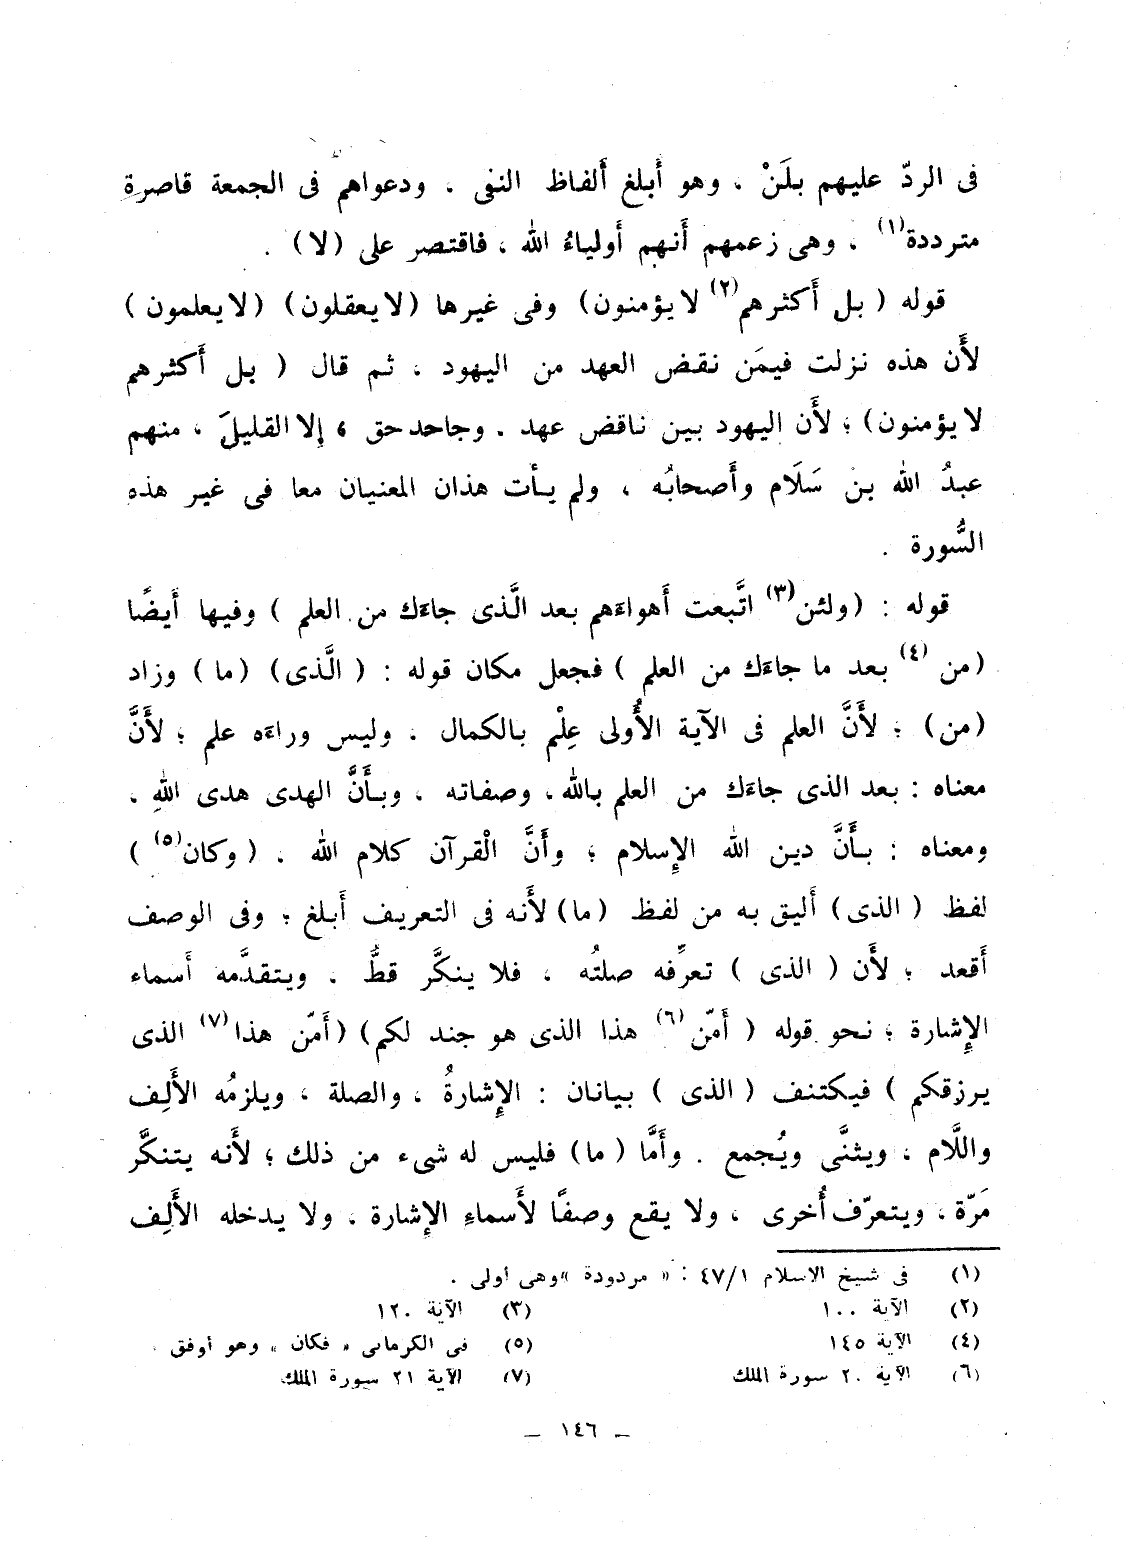 فى الردّ عليهم بلَنْ ، وهو أَبلغ أَلفاظ النفى . ودعواهم فى الجمعة قاصرة
مترددة(١) ، وهى زعمهم أَنهم أَولياءُ الله ، فاقتصر على (لا) .
قوله ( بل أَكثرهم(٢) لا يؤمنون) وفى غيرها (لا يعقلون) (لا يعلمون )
لأَن هذه نزلت فيمَن نقض العهد من اليهود ، ثم قال ( بل أَكثرهم
لا يؤمنون) ؛ لأَن اليهود بين ناقض عهد . وجاحد حق ، إِلا القليلَ ، منهم
عبدُ الله بن سَلَام وأَصحابُه ، ولم يأت هذان المعنيان معا فى غير هذه
السُّورة .
قوله : (ولئن(٣) اتَّبعت أَهواءَهم بعد الَّذى جاءَك من العلم ) وفيها أَيضًا
(من (٤) بعد ما جاءَك من العلم ) فجعل مكان قوله : ( الَّذى) (ما ) وزاد
(من) ؛ لأَنَّ العلم فى الآية الأُولى عِلْم بالكمال . وليس وراءَه علم ؛ لأَنَّ
معناه : بعد الذى جاءَك من العلم بالله ، وصفاته ، وبأَنَّ الهدى هدى اللهِ .
ومعناه : بأَنَّ دين الله الإِسلام ؛ وأَنَّ الْقرآن كلام الله . ( وكان(٥) )
لفظ ( الذى ) أَليق به من لفظ (ما) لأَنه فى التعريف أَبلغ ؛ وفى الوصف
أَقعد ؛ لأَن ( الذى ) تعرِّفه صلتُه ، فلا ينكَّر قطُّ . ويتقدَّمه أَسماء
الإِشارة ؛ نحو قوله ( أَمّن(٦) هذا الذى هو جند لكم) (أَمّن هذا(٧) الذى
يرزقكم ) فيكتنف ( الذى ) بيانان : الإِشارةُ ، والصلة ، ويلزمُه الأَلِف
واللَّام ، ويثنَّى ويُجمع . وأَمَّا ( ما) فليس له شىء من ذلك ؛ لأَنه يتنكَّر
مَرّة ، ويتعرّف أُخرى ، ولا يقع وصفًا لأَسماءِ الإِشارة ، ولا يدخله الأَلِف
(١) فى شيخ الاسلام ٤٧/١ : « مردودة » وهى أولى .
(٢) الآية ١٠٠ (٣) الآية ١٢٠
(٤) الآية ١٤٥ (٥) فى الكرمانى « فكان » وهو أوفق .
(٦) الآية ٢٠ سورة الملك (٧) الآية ٢١ سورة الملك
– ١٤٦ –